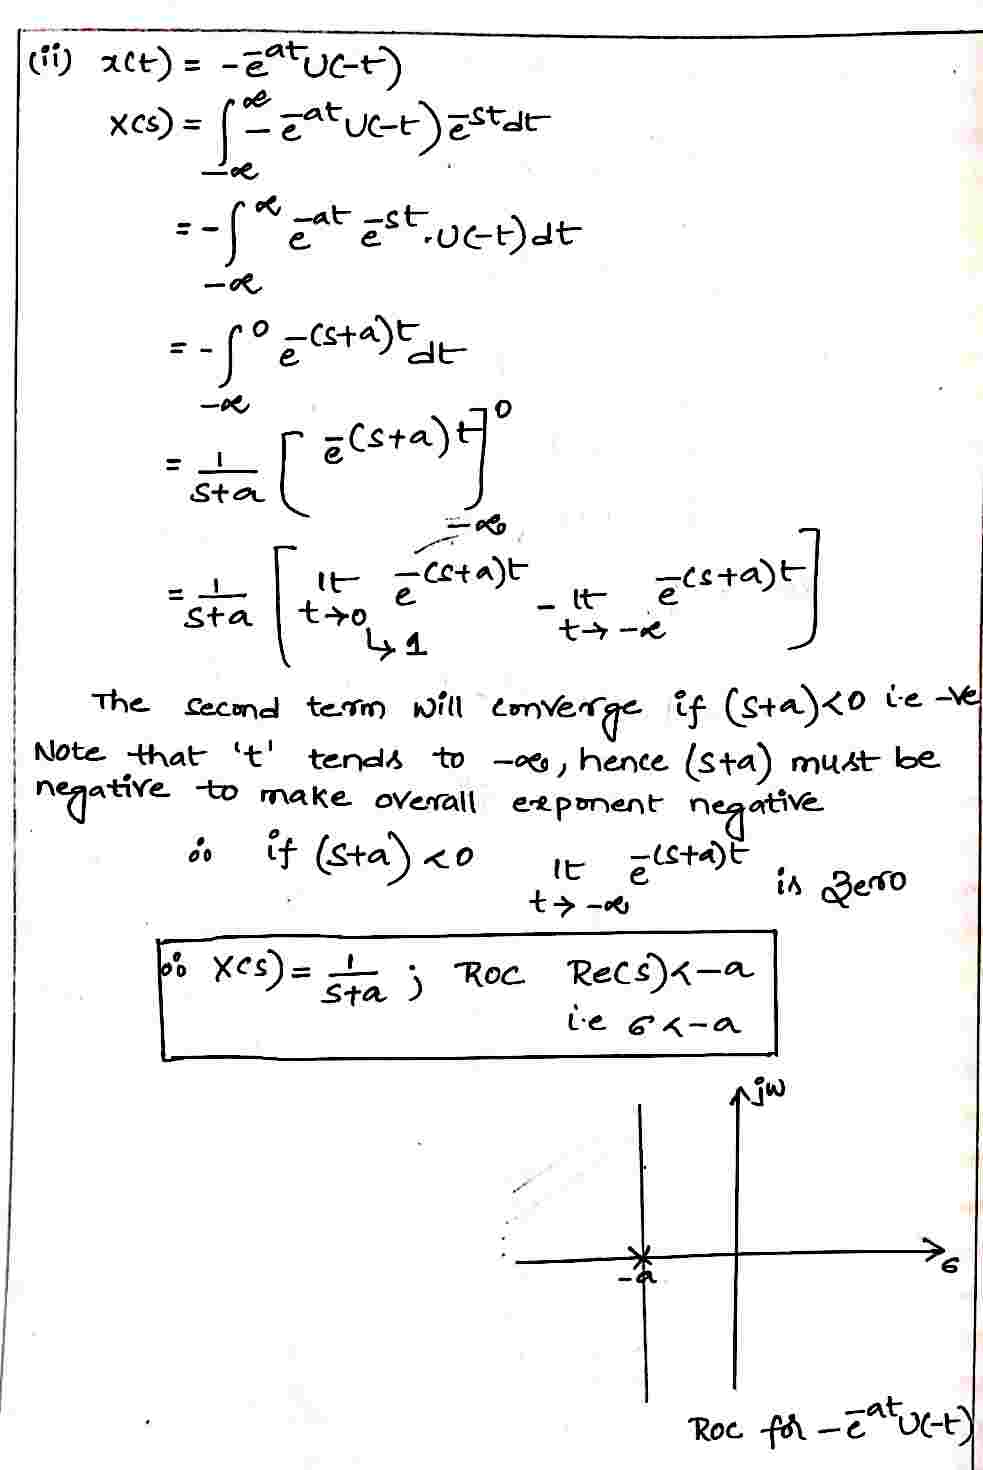 (ii) x(t) = -e^-at U(-t)
X(s) = ∫_-∞^∞ - e^-at U(-t) e^-st dt
= - ∫_-∞^∞ e^-at e^-st . U(-t) dt
= - ∫_-∞^0 e^-(s+a)t dt
= 1/(s+a) [ e^-(s+a)t ]_-∞^0
= 1/(s+a) [ lt t→0 e^-(s+a)t - lt t→-∞ e^-(s+a)t ]
↳ 1
The second term will converge if (s+a)<0 i.e -ve
Note that 't' tends to -∞, hence (s+a) must be
negative to make overall exponent negative
∴ if (s+a) <0 lt t→-∞ e^-(s+a)t is zero
∴ X(s) = 1/(s+a) ; ROC Re(s)<-a
i.e σ<-a
jω
σ
-a
ROC for -e^-at U(-t)